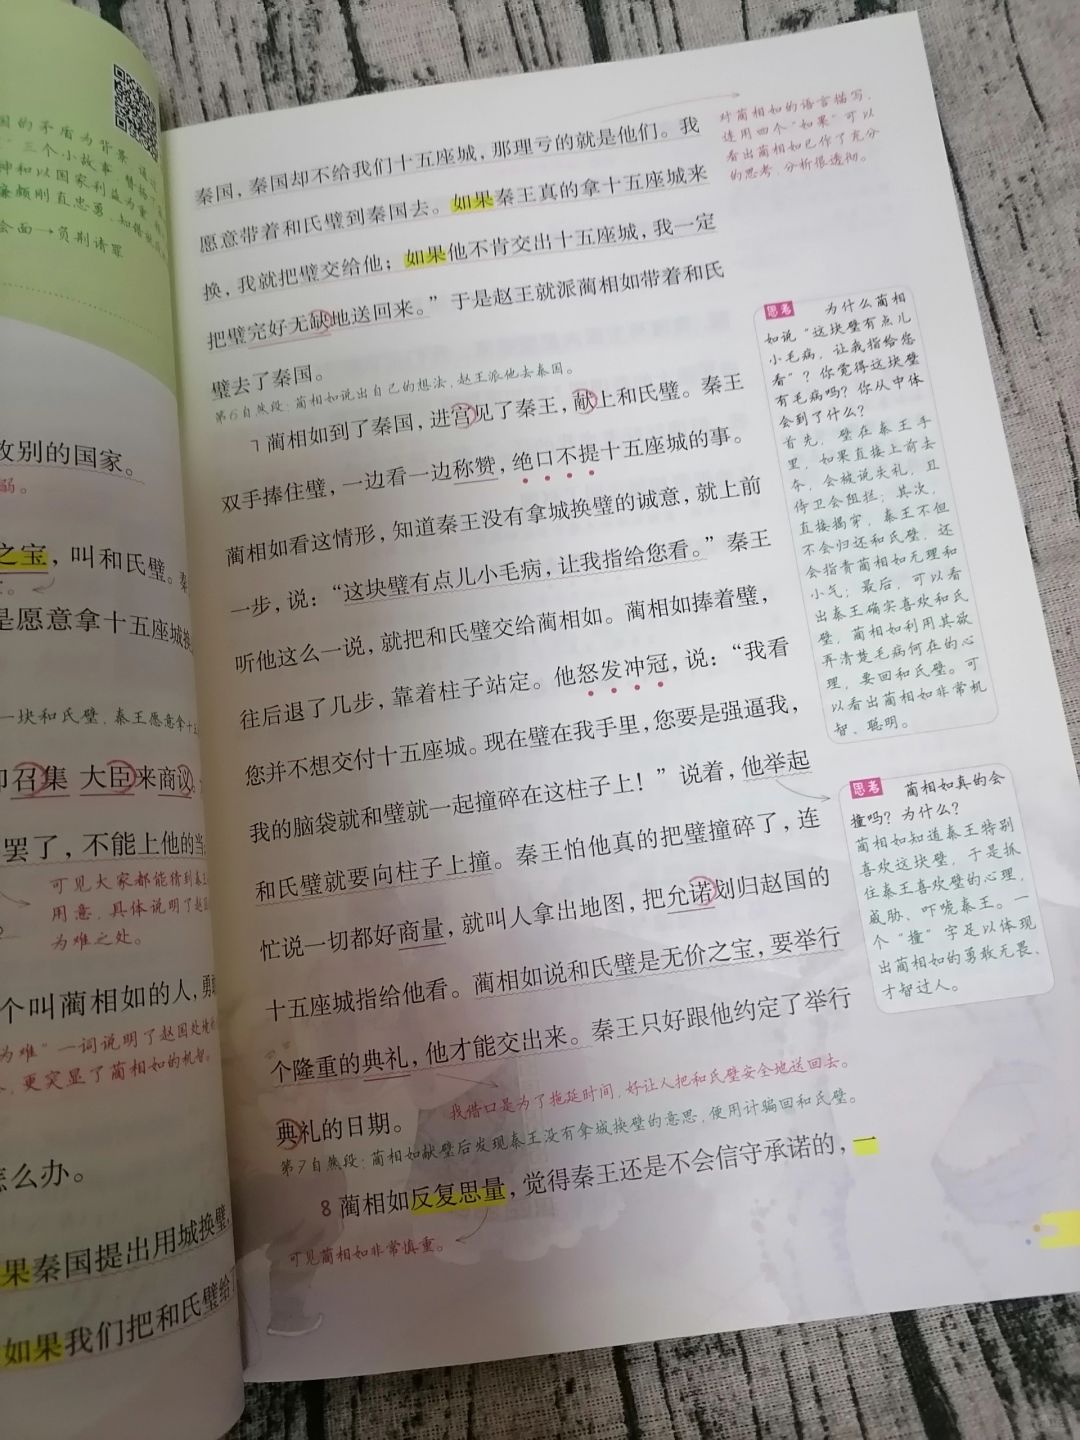 国的矛盾为背景，通过
”三个小故事，赞扬了
神和以国家利益为重
廉颇刚直忠勇、知错就
会面→负荆请罪
敌别的国家。
弱。
之宝，叫和氏璧。秦
是愿意拿十五座城换
一块和氏璧，秦王愿意拿十五
即召集 大臣来商议：
罢了，不能上他的当
可见大家都能猜到秦王
用意，具体说明了赵国
为难之处。
个叫蔺相如的人，勇
为难”一词说明了赵国处境
，更突显了蔺相如的机智。
怎么办。
果秦国提出用城换璧，
如果我们把和氏璧给了
秦国，秦国却不给我们十五座城，那理亏的就是他们。我
愿意带着和氏璧到秦国去。如果秦王真的拿十五座城来
换，我就把璧交给他；如果他不肯交出十五座城，我一定
把璧完好无缺地送回来。”于是赵王就派蔺相如带着和氏
璧去了秦国。
第6自然段：蔺相如说出自己的想法，赵王派他去秦国。
7 蔺相如到了秦国，进宫见了秦王，献上和氏璧。秦王
双手捧住璧，一边看一边称赞，绝口不提十五座城的事。
蔺相如看这情形，知道秦王没有拿城换璧的诚意，就上前
一步，说：“这块璧有点儿小毛病，让我指给您看。”秦王
听他这么一说，就把和氏璧交给蔺相如。蔺相如捧着璧，
往后退了几步，靠着柱子站定。他怒发冲冠，说：“我看
您并不想交付十五座城。现在璧在我手里，您要是强逼我，
我的脑袋就和璧就一起撞碎在这柱子上！”说着，他举起
和氏璧就要向柱子上撞。秦王怕他真的把璧撞碎了，连
忙说一切都好商量，就叫人拿出地图，把允诺划归赵国的
十五座城指给他看。蔺相如说和氏璧是无价之宝，要举行
个隆重的典礼，他才能交出来。秦王只好跟他约定了举行
典礼的日期。
找借口是为了拖延时间，好让人把和氏璧安全地送回去。
第7自然段：蔺相如献璧后发现秦王没有拿城换璧的意思，便用计骗回和氏璧。
8 蔺相如反复思量，觉得秦王还是不会信守承诺的，一
可见蔺相如非常慎重。
对蔺相如的语言描写，
连用四个“如果”可以
看出蔺相如已作了充分
的思考，分析很透彻。
思考 为什么蔺相
如说“这块璧有点儿
小毛病，让我指给您
看”？你觉得这块璧
有毛病吗？你从中体
会到了什么？
首先，璧在秦王手
里，如果直接上前去
夺，会被说失礼，且
侍卫会阻拦；其次，
直接揭穿，秦王不但
不会归还和氏璧，还
会指责蔺相如无理和
小气；最后，可以看
出秦王确实喜欢和氏
璧，蔺相如利用其欲
弄清楚毛病何在的心
理，要回和氏璧。可
以看出蔺相如非常机
智、聪明。
思考 蔺相如真的会
撞吗？为什么？
蔺相如知道秦王特别
喜欢这块璧，于是抓
住秦王喜欢璧的心理，
威胁、吓唬秦王。一
个“撞”字足以体现
出蔺相如的勇敢无畏、
才智过人。